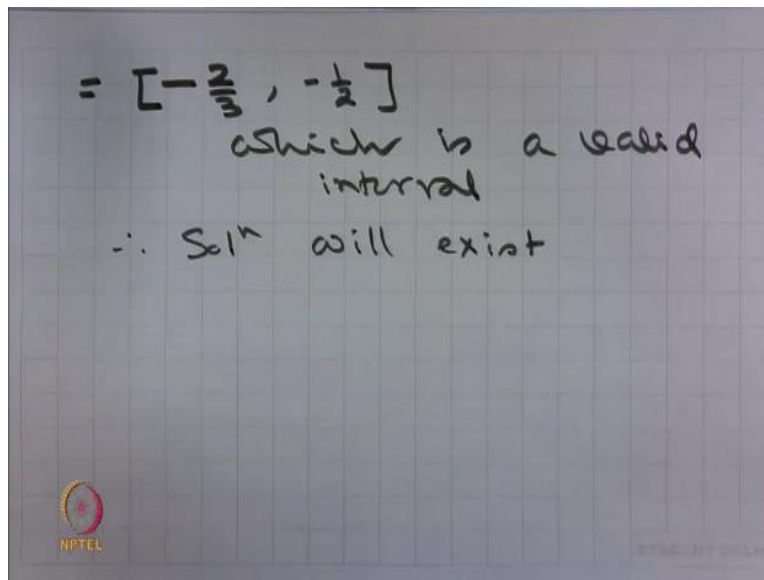 = [-2/3, -1/2]
which is a valid
interval
∴ Solⁿ will exist
NPTEL